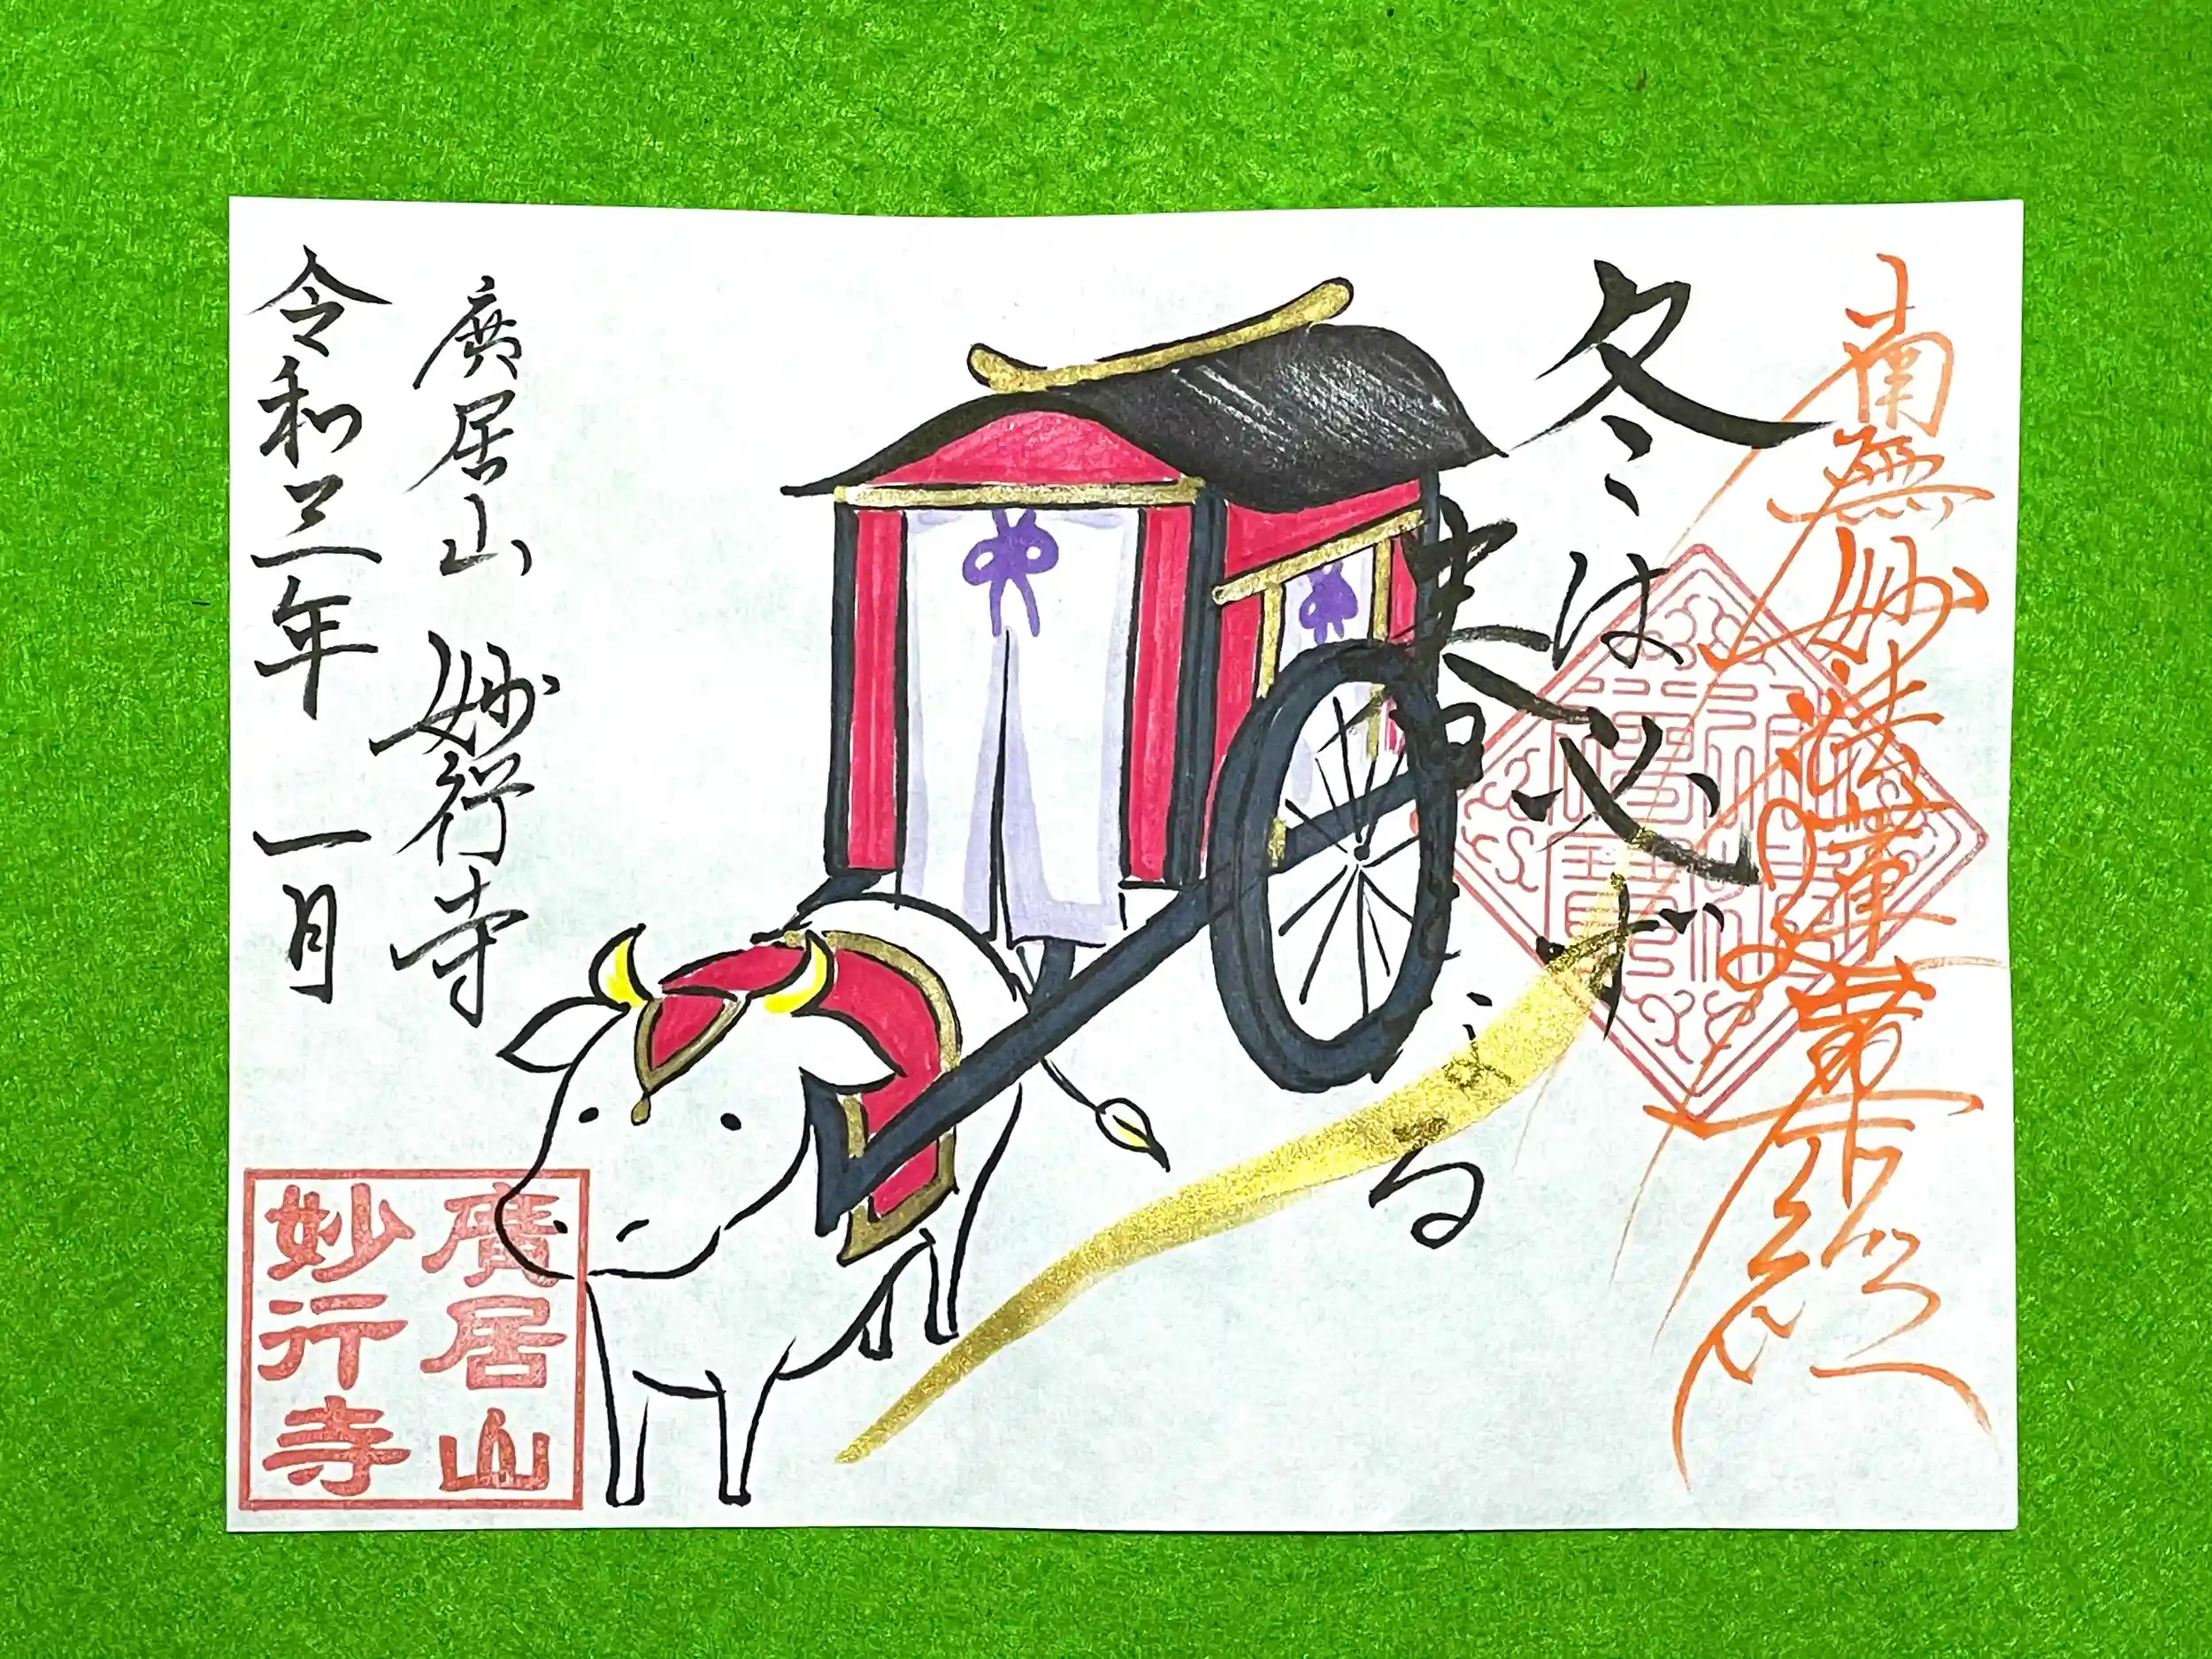 南無妙法蓮華經
冬は必ず
春となる
廣居山 妙行寺
令和三年 一月
廣居山
妙行寺